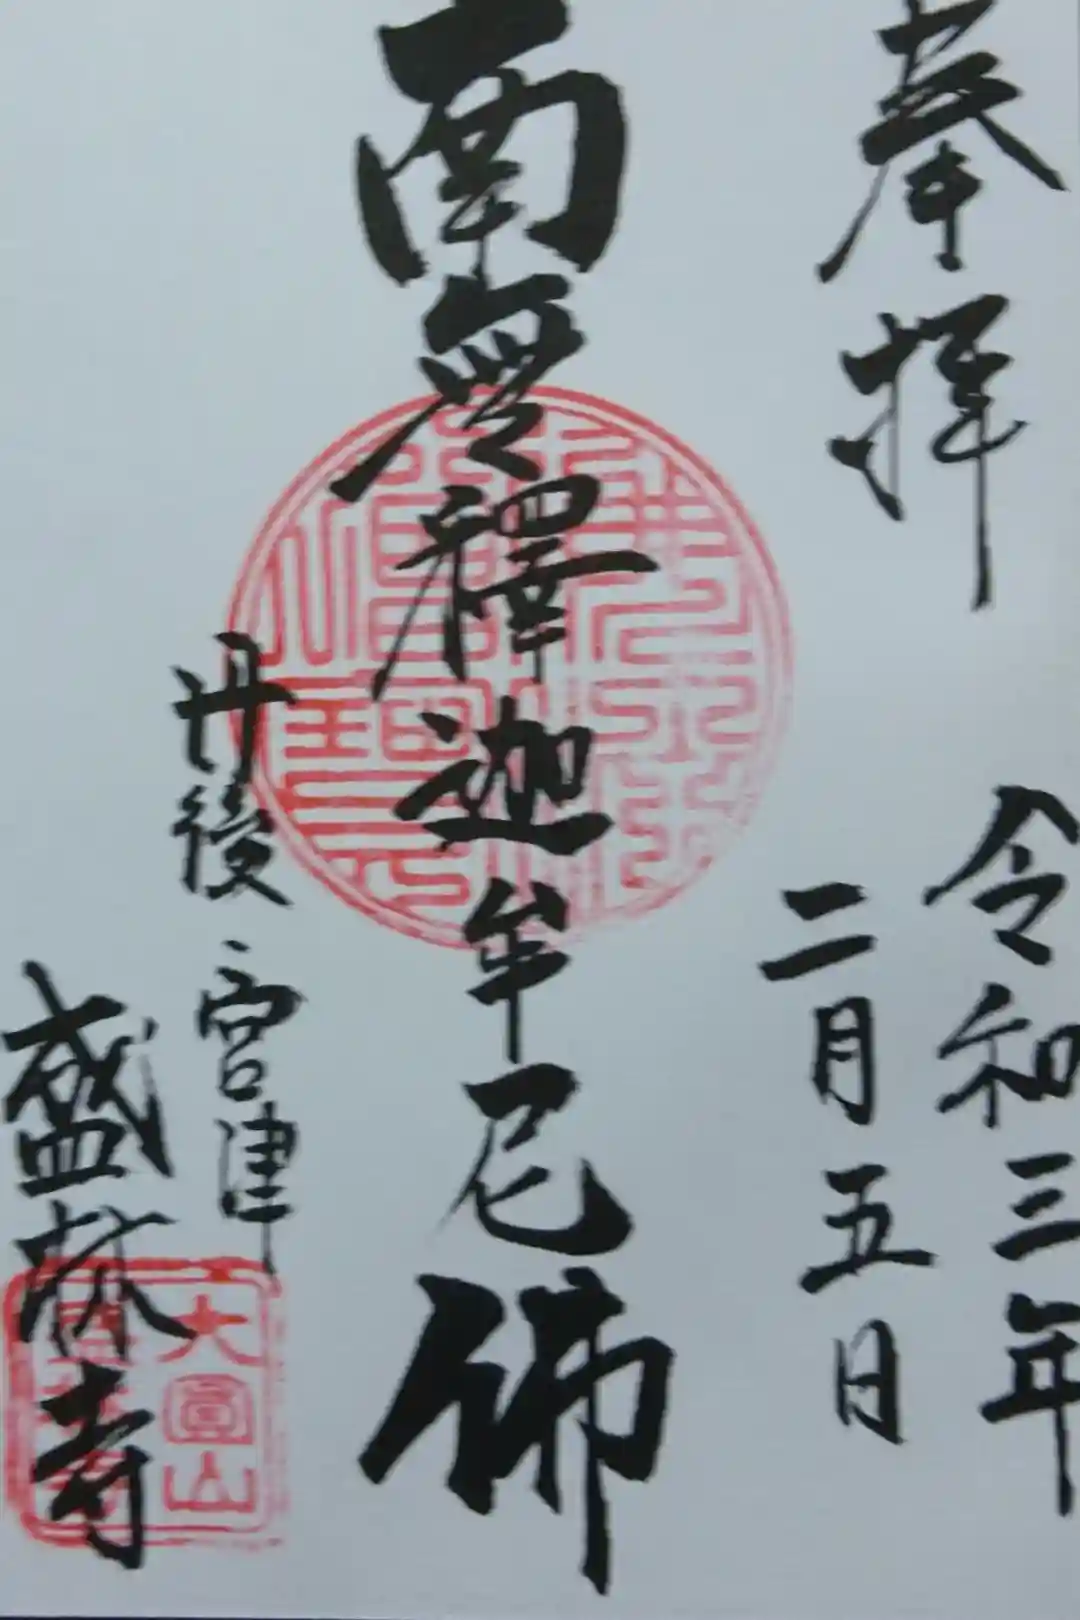 奉拝
令和三年
二月五日
南無釋迦牟尼佛
丹後 宮津
盛林寺
大圓山
盛林寺